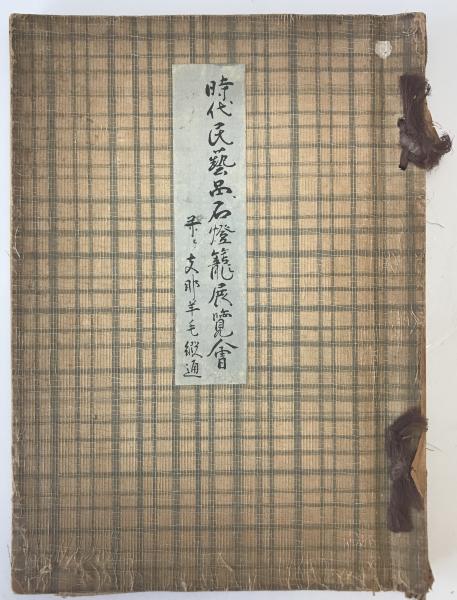 時代民藝品石燈籠展覧會
并ニ支那羊毛緞通